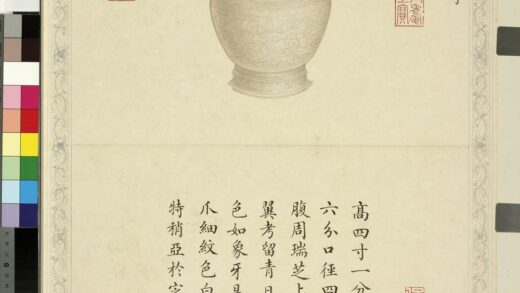 高四寸一分
六分口徑四
腹周瑞芝上
翼考留青日
色如象牙
爪細紋色白
特稍亞於